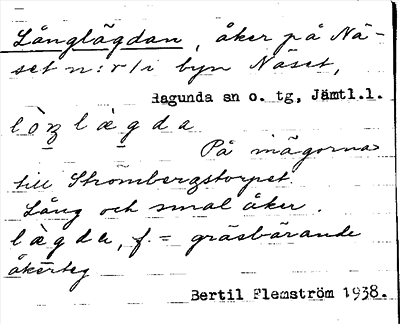 Långlägdan, åker på Nä-
set n:r 1 i byn Näset,
Ragunda sn o. tg, Jämtl.l.
l ò ŋ l ȩ̀ g d a
På mågorna
till Strömbergstorpet.
Lång och smal åker.
l ȩ̀ g d a, f. = gräsbärande
åkerteg
Bertil Flemström 1938.